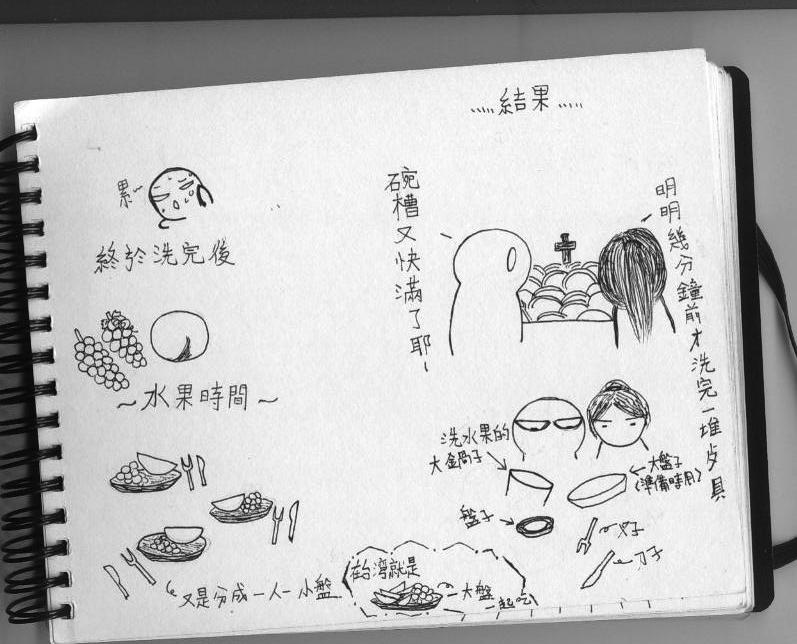 累~
終於洗完後
~水果時間~
又是分成一人一小盤
在台灣就是
一大盤
一起吃
.....結果.....
碗槽又快滿了耶~
明明幾分鐘前才洗完一堆歺具
洗水果的
大鍋子
大盤子
(準備時用)
盤子
叉子
刀子